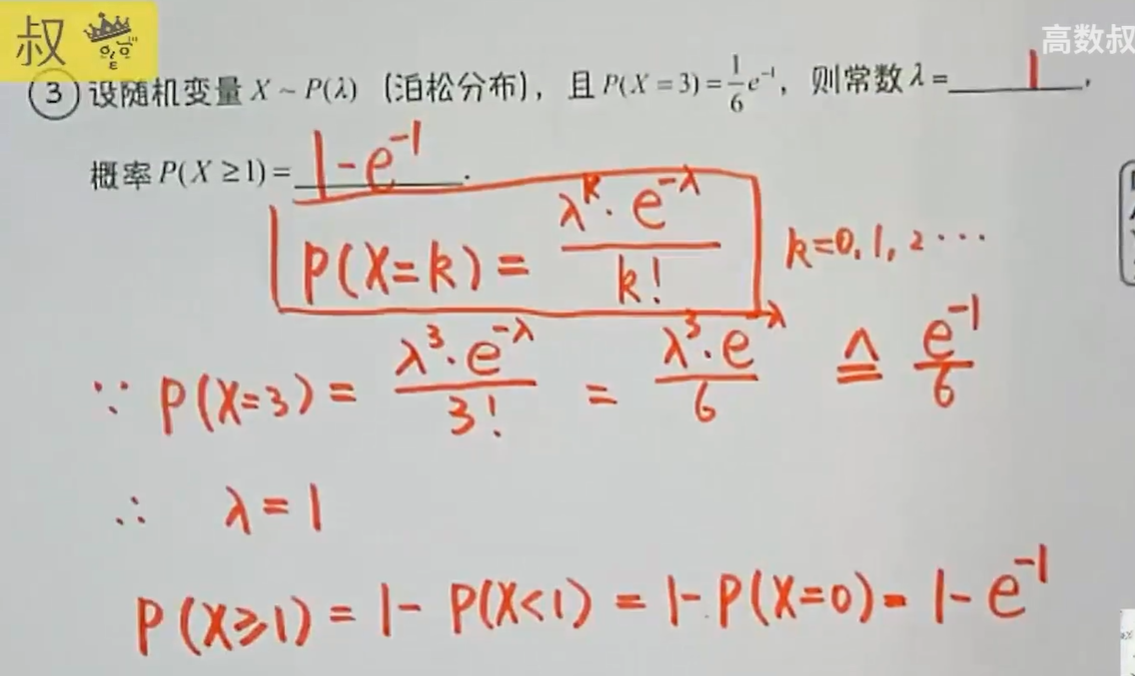 叔
高数叔
③ 设随机变量 X ~ P(λ) (泊松分布), 且 P(X = 3) = 1/6 e⁻¹, 则常数 λ = 1,
概率 P(X ≥ 1) = 1 - e⁻¹.
P(X=k) = λᵏ · e^(-λ) / k! k=0, 1, 2 ···
∵ P(X=3) = λ³ · e^(-λ) / 3! = λ³ · e^(-λ) / 6 ≙ e⁻¹ / 6
∴ λ = 1
P(X≥1) = 1 - P(X<1) = 1 - P(X=0) = 1 - e⁻¹